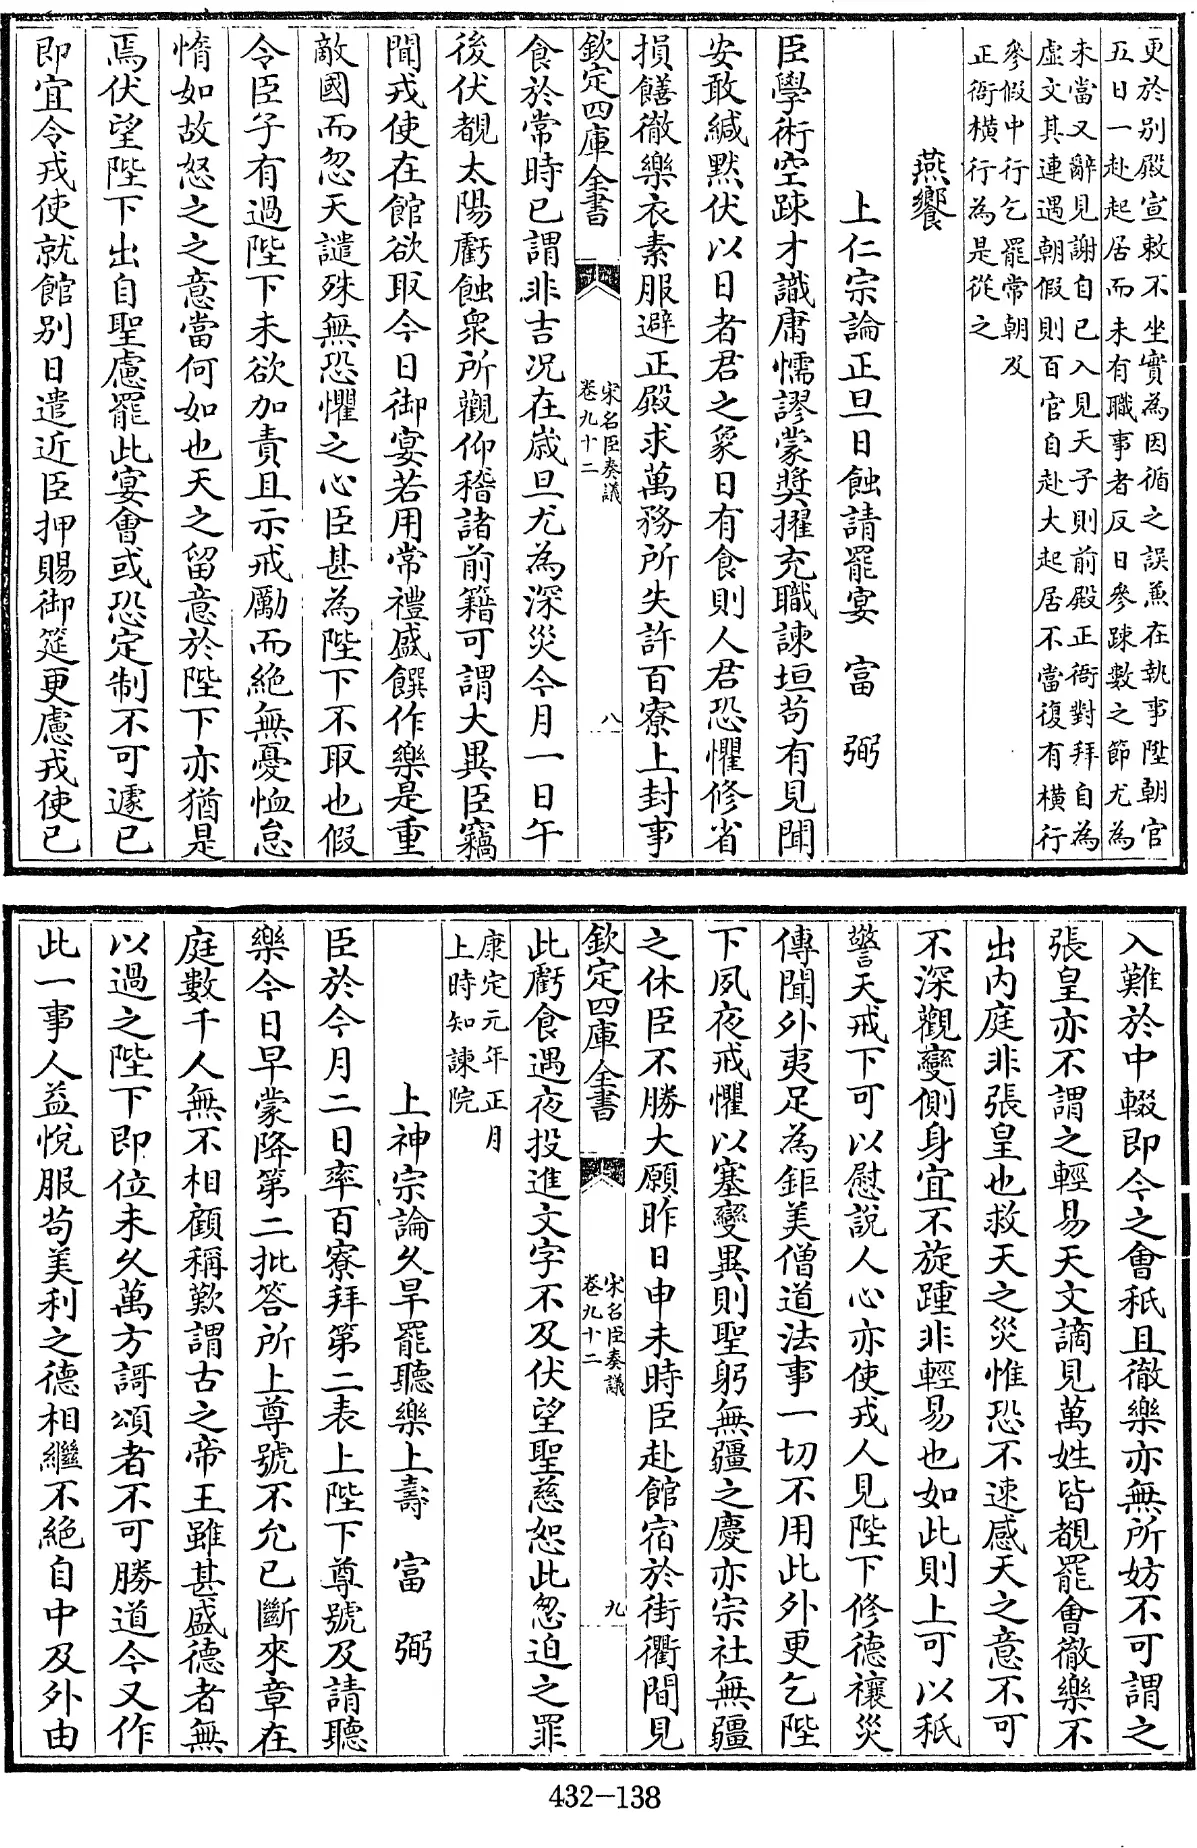 更於别殿宣敕不坐實為因循之誤兼在執事陞朝官
五日一赴起居而未有職事者反日參踈數之節尤為
未當又辭見謝自已入見天子則前殿正衙對拜自為
虚文其連遇朝假則百官自赴大起居不當復有橫行
參假中行乞罷常朝及
正衙橫行為是從之
燕饗
上仁宗論正旦日蝕請罷宴　富　弼
臣學術空踈才識庸懦謬蒙奨擢充職諫垣茍有見聞
安敢緘黙伏以日者君之象日有食則人君恐懼修省
損饍徹樂衣素服避正殿求萬務所失許百寮上封事
欽定四庫全書
宋名臣奏議
卷九十二
八
食於常時已謂非吉况在歲旦尤為深災今月一日午
後伏覩太陽虧蝕衆所觀仰稽諸前籍可謂大異臣竊
聞戎使在館欲取今日御宴若用常禮盛饌作樂是重
敵國而忽天譴殊無恐懼之心臣甚為陛下不取也假
令臣子有過陛下未欲加責且示戒勵而絶無憂恤怠
惰如故怒之之意當何如也天之留意於陛下亦猶是
焉伏望陛下出自聖慮罷此宴會或恐定制不可遽已
即宜令戎使就館别日遣近臣押賜御筵更慮戎使已
入難於中輟即令之會秖且徹樂亦無所妨不可謂之
張皇亦不謂之輕易天文謫見萬姓皆覩罷會徹樂不
出内庭非張皇也救天之災惟恐不速感天之意不可
不深觀變側身宜不旋踵非輕易也如此則上可以秖
警天戒下可以慰說人心亦使戎人見陛下修德禳災
傳聞外夷足為鉅美僧道法事一切不用此外更乞陛
下夙夜戒懼以塞變異則聖躬無疆之慶亦宗社無疆
之休臣不勝大願昨日申未時臣赴館宿於街衢間見
欽定四庫全書
宋名臣奏議
卷九十二
九
此虧食遇夜投進文字不及伏望聖慈恕此怱迫之罪
康定元年正月
上時知諫院
上神宗論久旱罷聽樂上壽　富　弼
臣於今月二日率百寮拜第二表上陛下尊號及請聽
樂今日早蒙降第二批答所上尊號不允已斷來章在
庭數千人無不相顧稱歎謂古之帝王雖甚盛德者無
以過之陛下即位未久萬方謌頌者不可勝道今又作
此一事人益悅服茍美利之德相繼不絶自中及外由
432-138